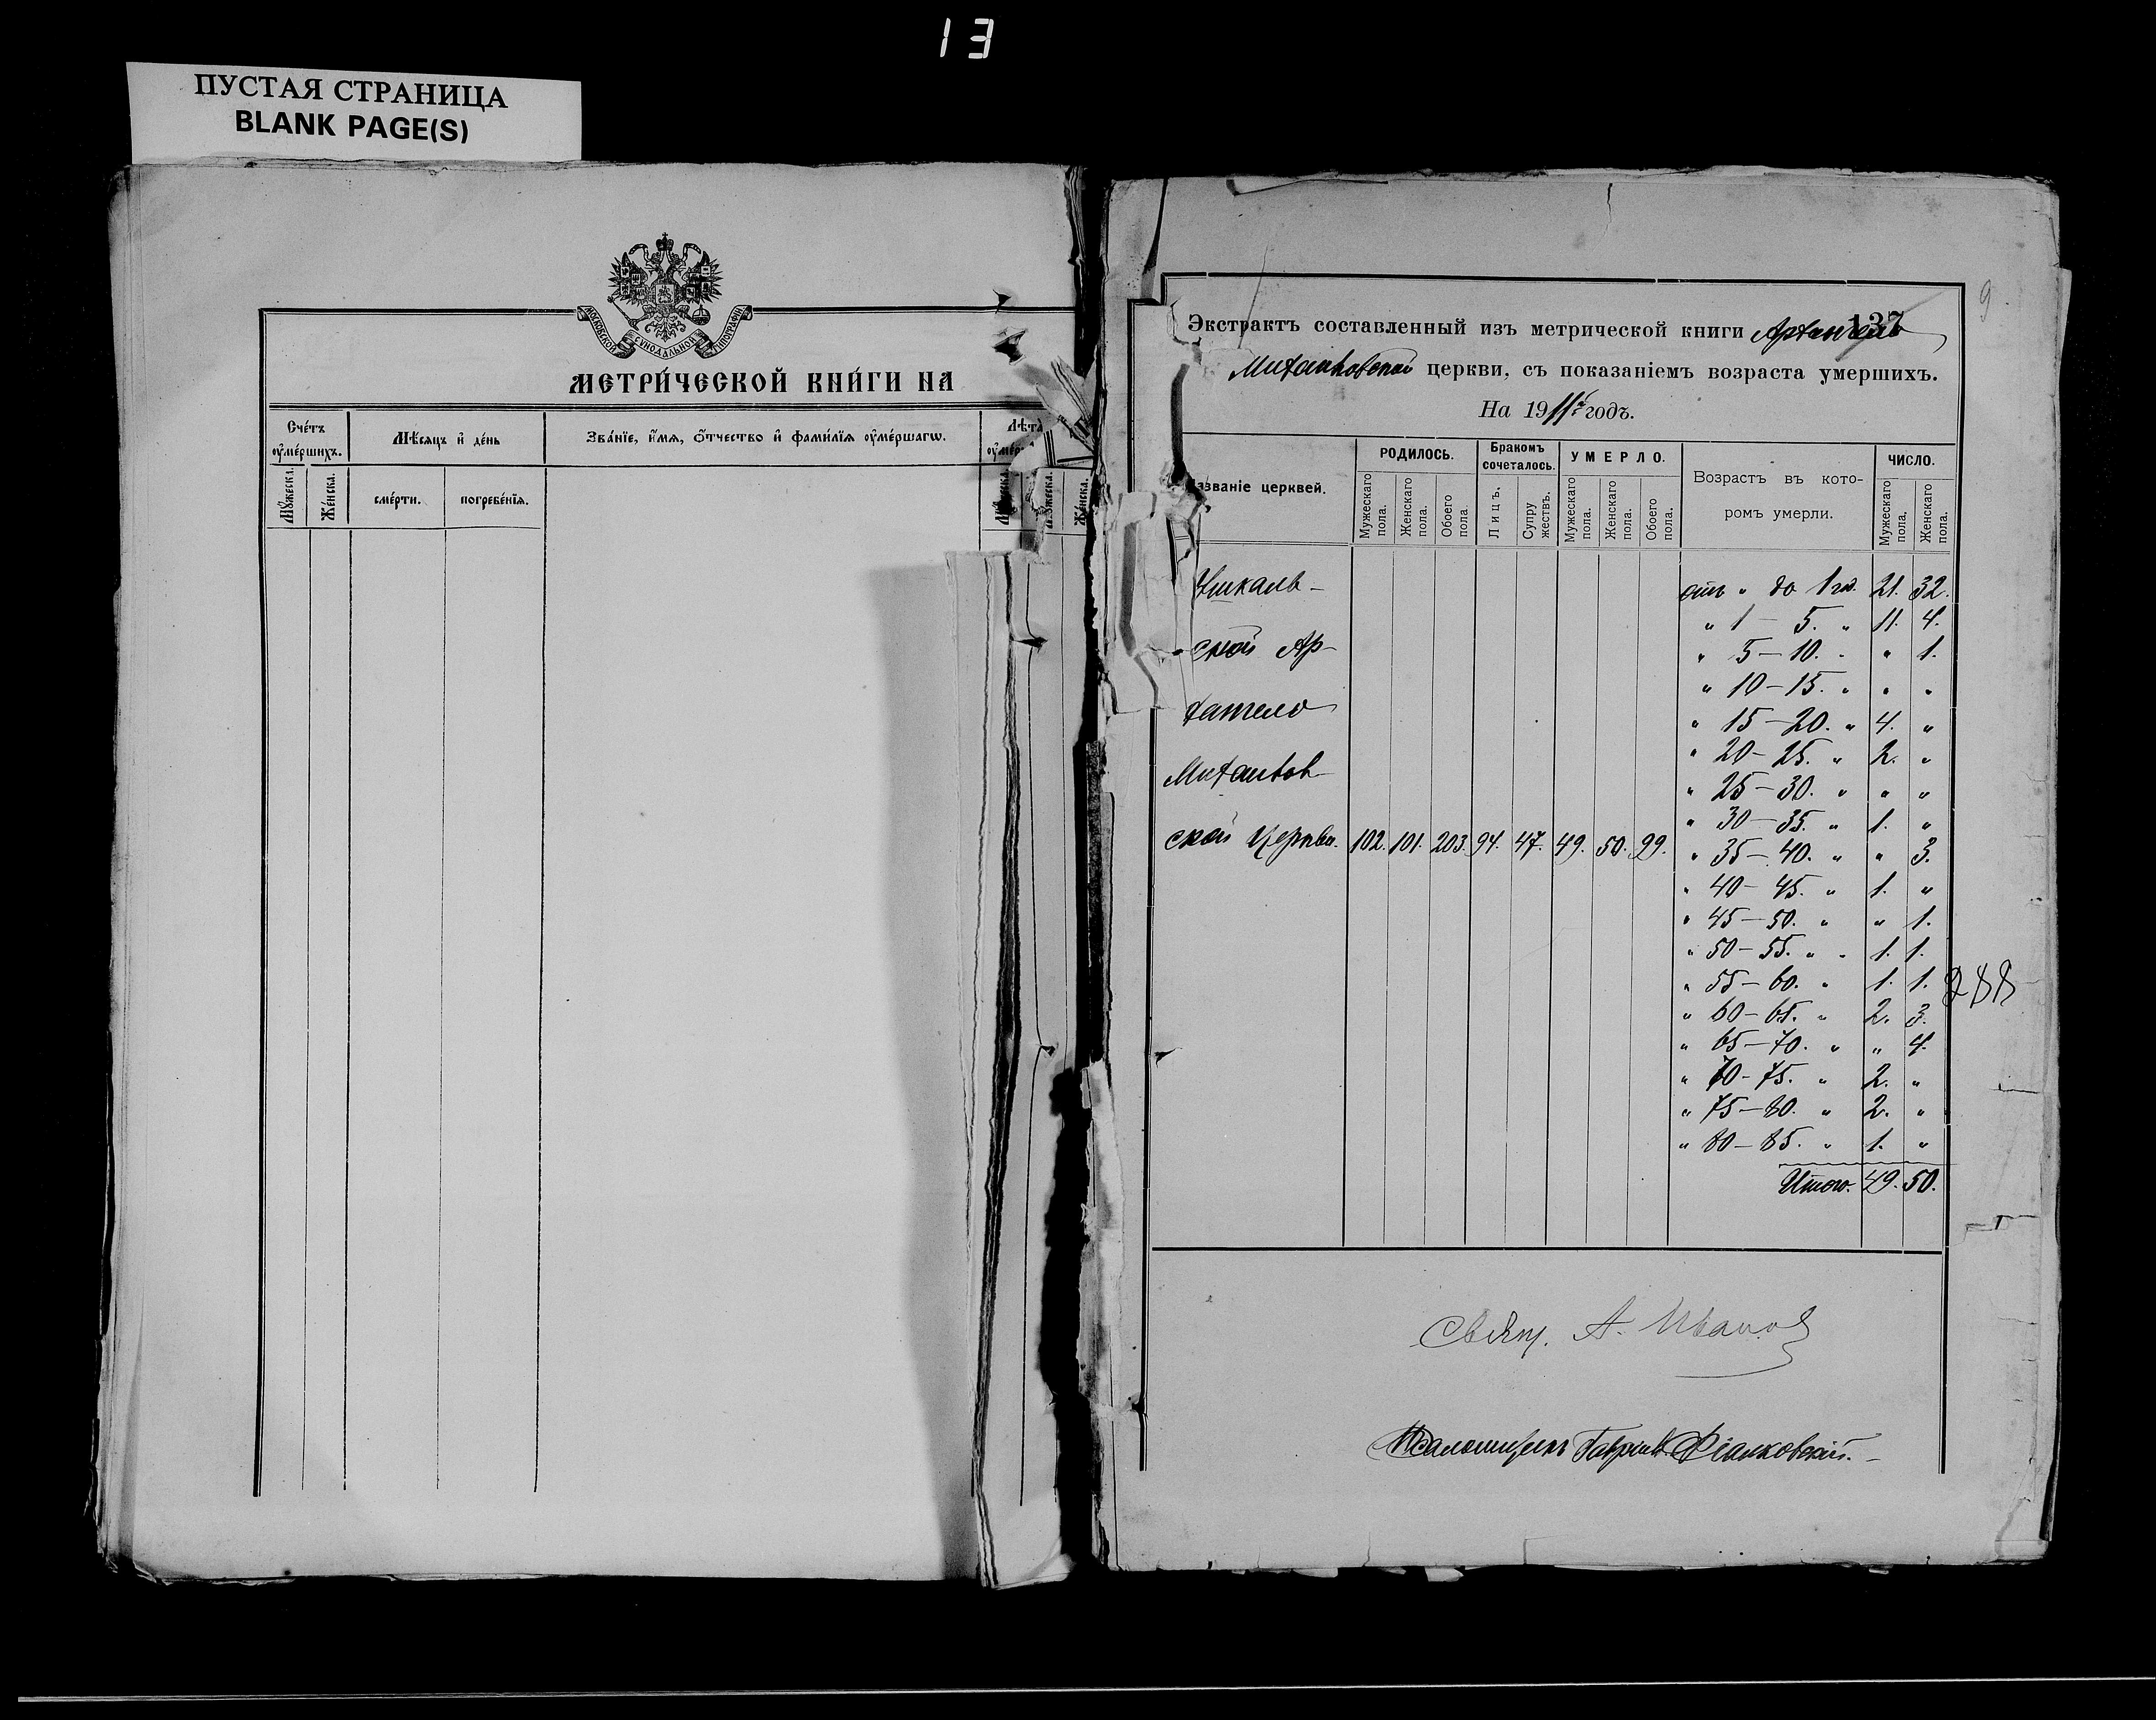 13
ПУСТАЯ СТРАНИЦА
BLANK PAGE(S)
МОСКОВСКОЙ СѴНОДАЛЬНОЙ ТИПОГРАФІИ
МЕТРИ́ЧЕСКОЙ КНИ́ГИ НА
Сче́тъ оу҆ме́ршихъ.
Мѣ́сяцъ и҆ де́нь
Зва́нїе, и҆́мя, ѻ҆́тчество и҆ фами́лїя оу҆ме́ршагѡ.
Лѣта̀
Мꙋ́жеска.
Же́нска.
сме́рти.
погребе́нїя.
Же́нска.
9
137
Экстрактъ составленный изъ метрической книги Архангело
Михаиловской церкви, съ показаніемъ возраста умершихъ.
На 1911й годъ.
Названіе церквей.
РОДИЛОСЬ.
Бракомъ сочеталось.
УМЕРЛО.
Возрастъ въ которомъ умерли.
ЧИСЛО.
Мужескаго пола.
Женскаго пола.
Обоего пола.
Лицъ.
Супружествъ.
Мужескаго пола.
Женскаго пола.
Обоего пола.
Мужескаго пола.
Женскаго пола.
ской Ар-
хангело
Михаилов-
ской Церкви. 102. 101. 203. 94. 47. 49. 50. 99.
отъ " до 1 г. 21. 32.
" 1 - 5. " 11. 4.
" 5 - 10. " " 1.
" 10 - 15. " " "
" 15 - 20. " 4. "
" 20 - 25. " 2. "
" 25 - 30. " " "
" 30 - 35. " 1. "
" 35 - 40. " " 3.
" 40 - 45. " 1. "
" 45 - 50. " " 1.
" 50 - 55. " 1. 1.
" 55 - 60. " 1. 1.
" 60 - 65. " 2. 3.
" 65 - 70. " " 4.
" 70 - 75. " 2. "
" 75 - 80. " 2. "
" 80 - 85. " 1. "
Итого. 49. 50.
288
Свящ. А. Иванов
Псаломщикъ Гавріилъ Фіалковскій.